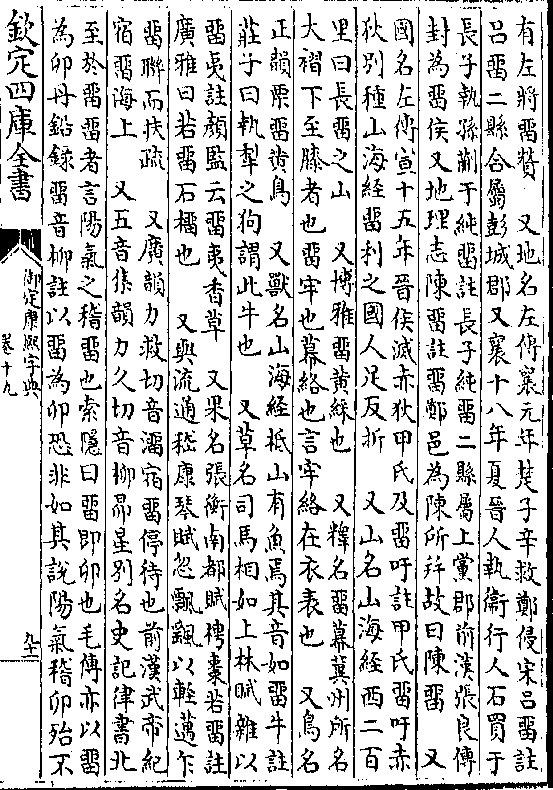 有左將畱贊　又地名左傳襄元年楚子辛救鄭侵宋呂畱註
呂畱二縣今屬彭城郡又襄十八年夏晉人執衞行人石買于
長子執孫蒯于純畱註長子純畱二縣屬上黨郡前漢張良傳
封為畱侯又地理志陳畱註畱鄭邑為陳所幷故曰陳畱　又
國名左傳宣十五年晉侯滅赤狄甲氏及畱吁註甲氏畱吁赤
狄別種山海經畱利之國人足反折　又山名山海經西二百
里曰長畱之山　又博雅畱黃綠也　又釋名畱幕冀州所名
大褶下至膝者也畱牢也幕絡也言牢絡在衣表也　又鳥名
正韻栗畱黃鳥　又獸名山海經柢山有魚焉其音如畱牛註
莊子曰執犁之狗謂此牛也　又草名司馬相如上林賦雜以
畱夷註顏監云畱夷香草　又果名張衡南都賦梬棗若畱註
廣雅曰若畱石橊也　又與流通嵇康琴賦忽飄颻以輕邁乍
畱聯而扶疏　又廣韻力救切音溜宿畱停待也前漢武帝紀
宿畱海上　又五音集韻力久切音柳昴星別名史記律書北
至於畱畱者言陽氣之稽畱也索隱曰畱卽卯也毛傳亦以畱
為卯丹鉛錄畱音柳註以畱為卯恐非如其說陽氣稽卯殆不
欽定四庫全書
御定康熙字典
卷十九
九十一